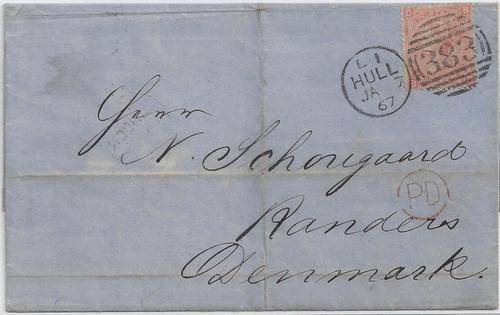 D B
383
L I
HULL
JA 7
67
Herrn
N. Schougaard
PD
Randers
Denmark.